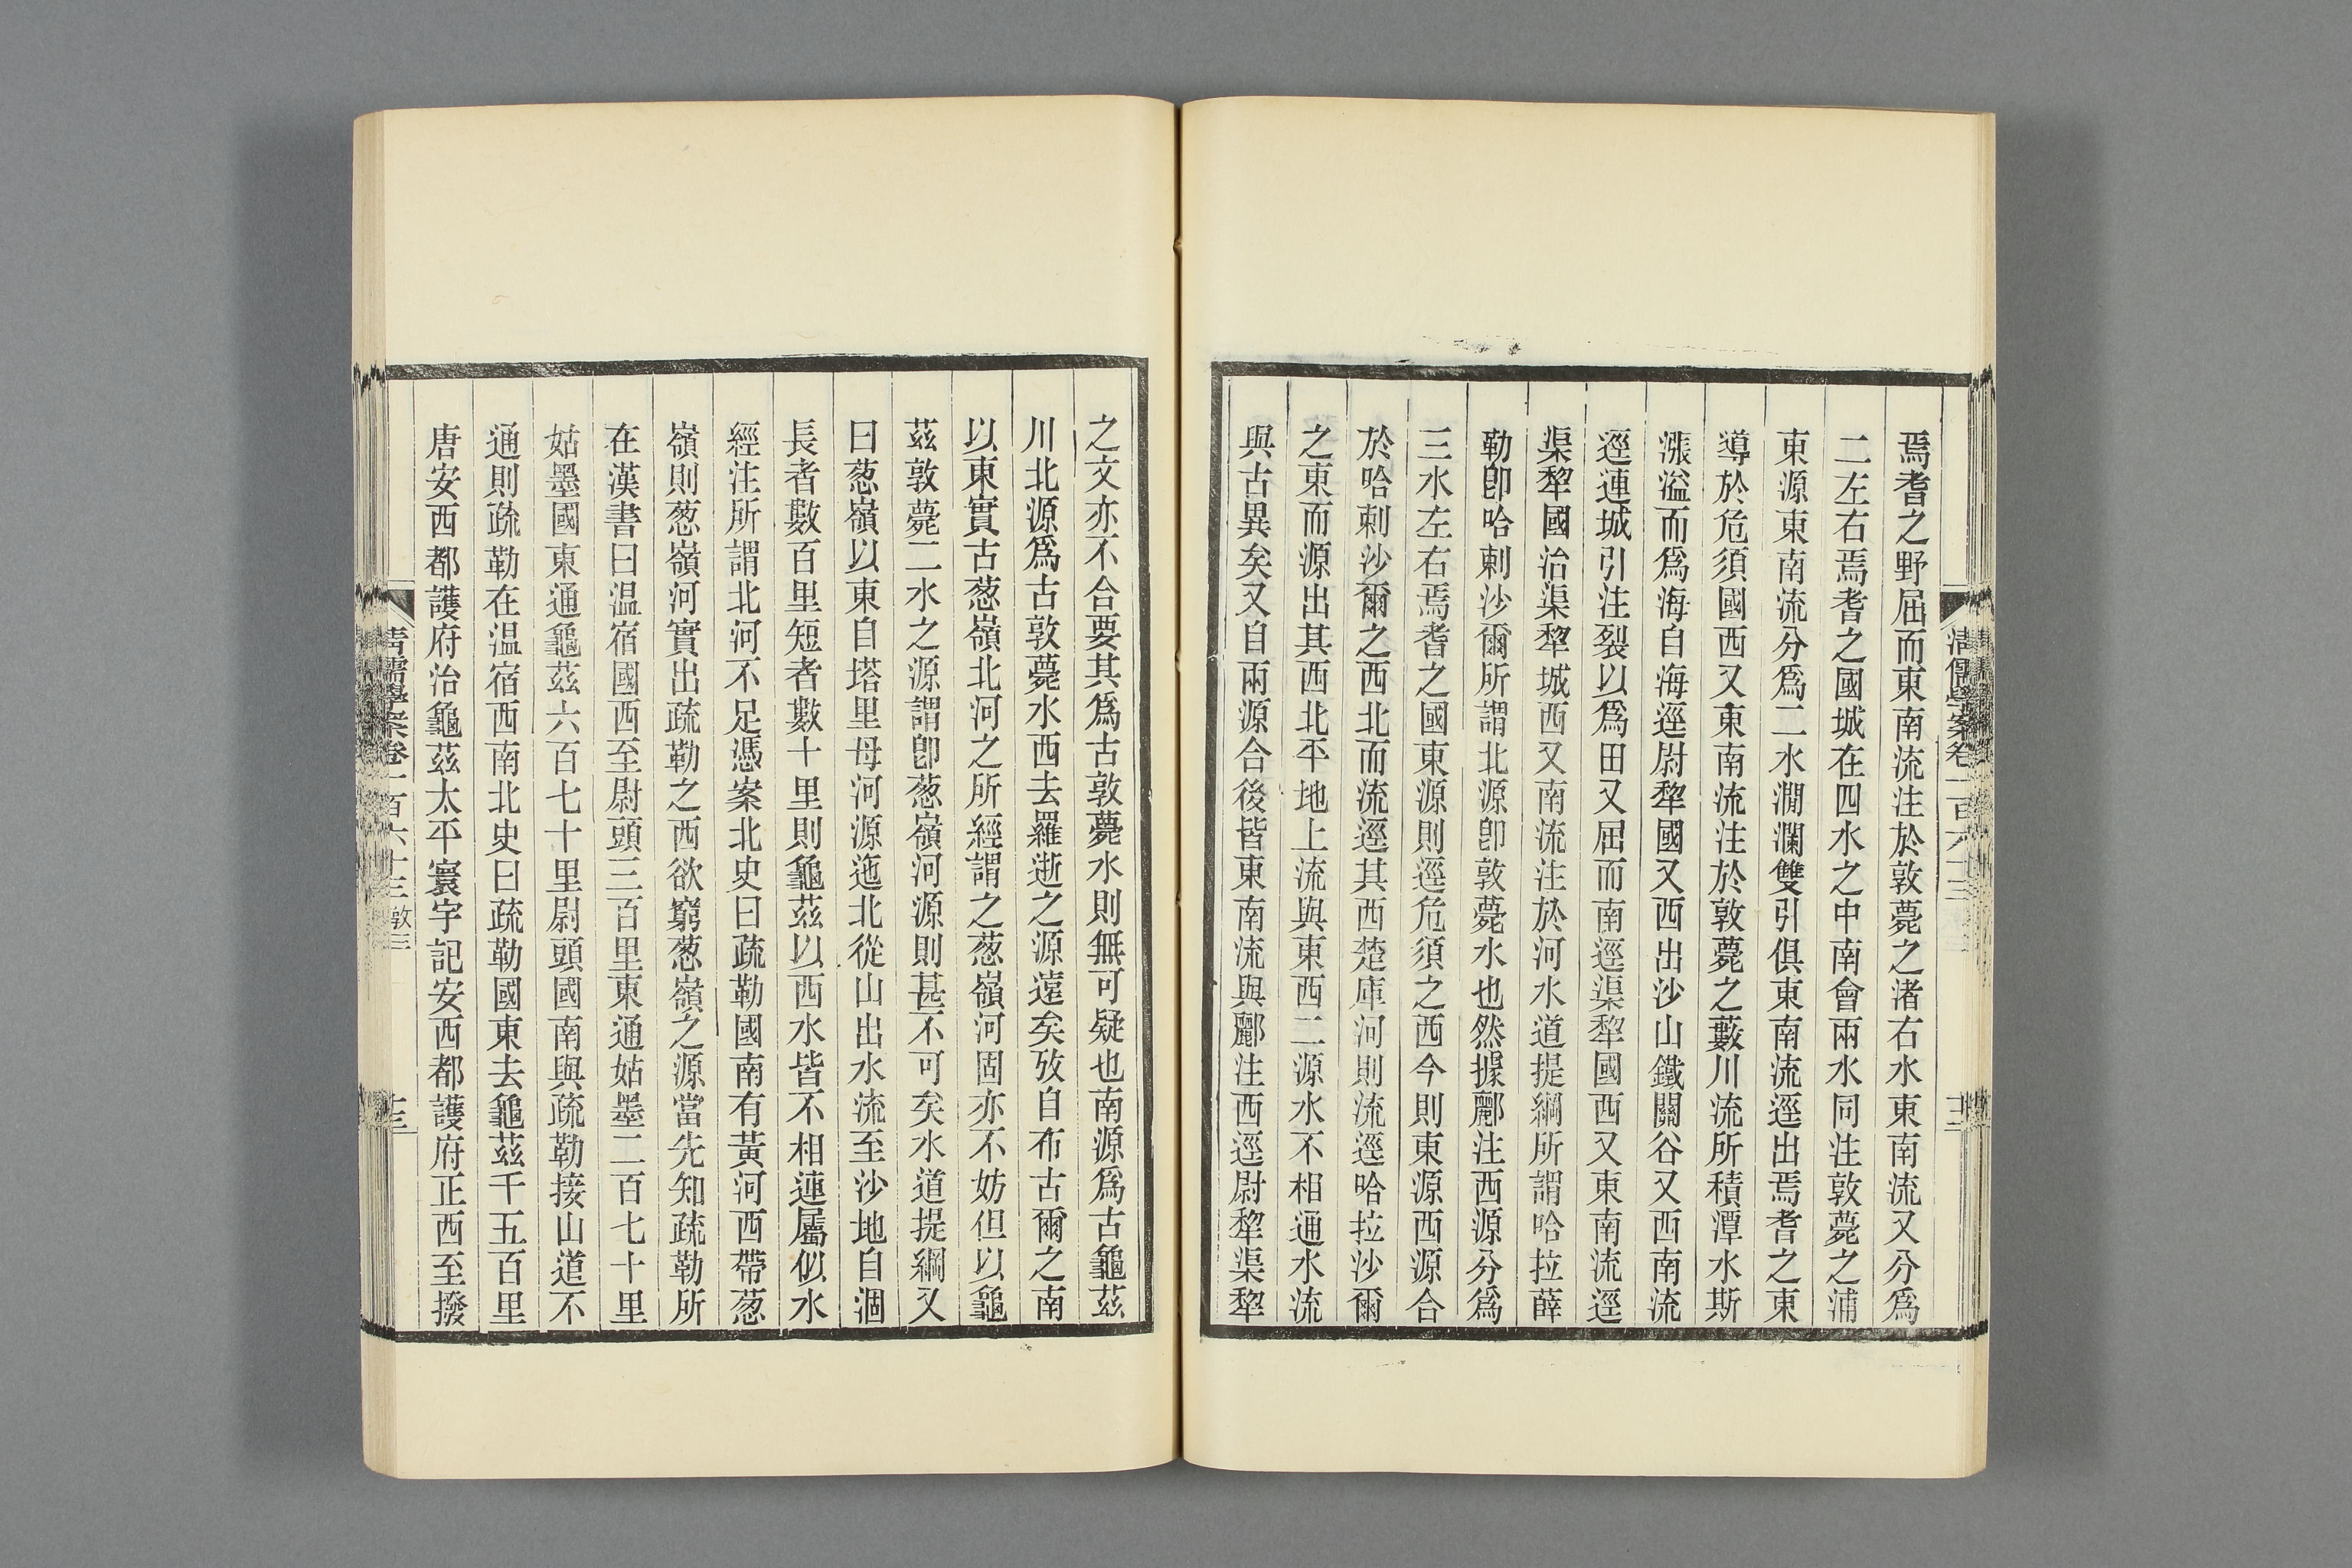 焉耆之野屈而東南流注於敦薨之渚右水東南流又分爲
二左右焉耆之國城在四水之中南會兩水同注敦薨之浦
東源東南流分爲二水澗瀾雙引俱東南流逕出焉耆之東
導於危須國西又東南流注於敦薨之藪川流所積潭水斯
漲溢而爲海自海逕尉犂國又西出沙山鐵關谷又西南流
逕連城引注裂以爲田又屈而南逕渠犂國西又東南流逕
渠犂國治渠犂城西又南流注於河水道提綱所謂哈拉薛
勒卽哈剌沙爾所謂北源卽敦薨水也然據酈注西源分爲
三水左右焉耆之國東源則逕危須之西今則東源西源合
於哈剌沙爾之西北而流逕其西楚庫河則流逕哈拉沙爾
之東而源出其西北平地上流與東西二源水不相通水流
與古異矣又自兩源合後皆東南流與酈注西逕尉犂渠犂
清儒學案卷一百六十三
十二
之文亦不合要其爲古敦薨水則無可疑也南源爲古龜茲
川北源爲古敦薨水西去羅逝之源遠矣攷自布古爾之南
以東實古葱嶺北河之所經謂之葱嶺河固亦不妨但以龜
茲敦薨二水之源謂卽葱嶺河源則甚不可矣水道提綱又
曰葱嶺以東自塔里母河源迤北從山出水流至沙地自涸
長者數百里短者數十里則龜茲以西水皆不相連屬似水
經注所謂北河不足憑案北史曰疏勒國南有黃河西帶葱
嶺則葱嶺河實出疏勒之西欲窮葱嶺之源當先知疏勒所
在漢書曰温宿國西至尉頭三百里東通姑墨二百七十里
姑墨國東通龜茲六百七十里尉頭國南與疏勒接山道不
通則疏勒在温宿西南北史曰疏勒國東去龜茲千五百里
唐安西都護府治龜茲太平寰宇記安西都護府正西至撥
清儒學案卷一百六十三 敦三
十三